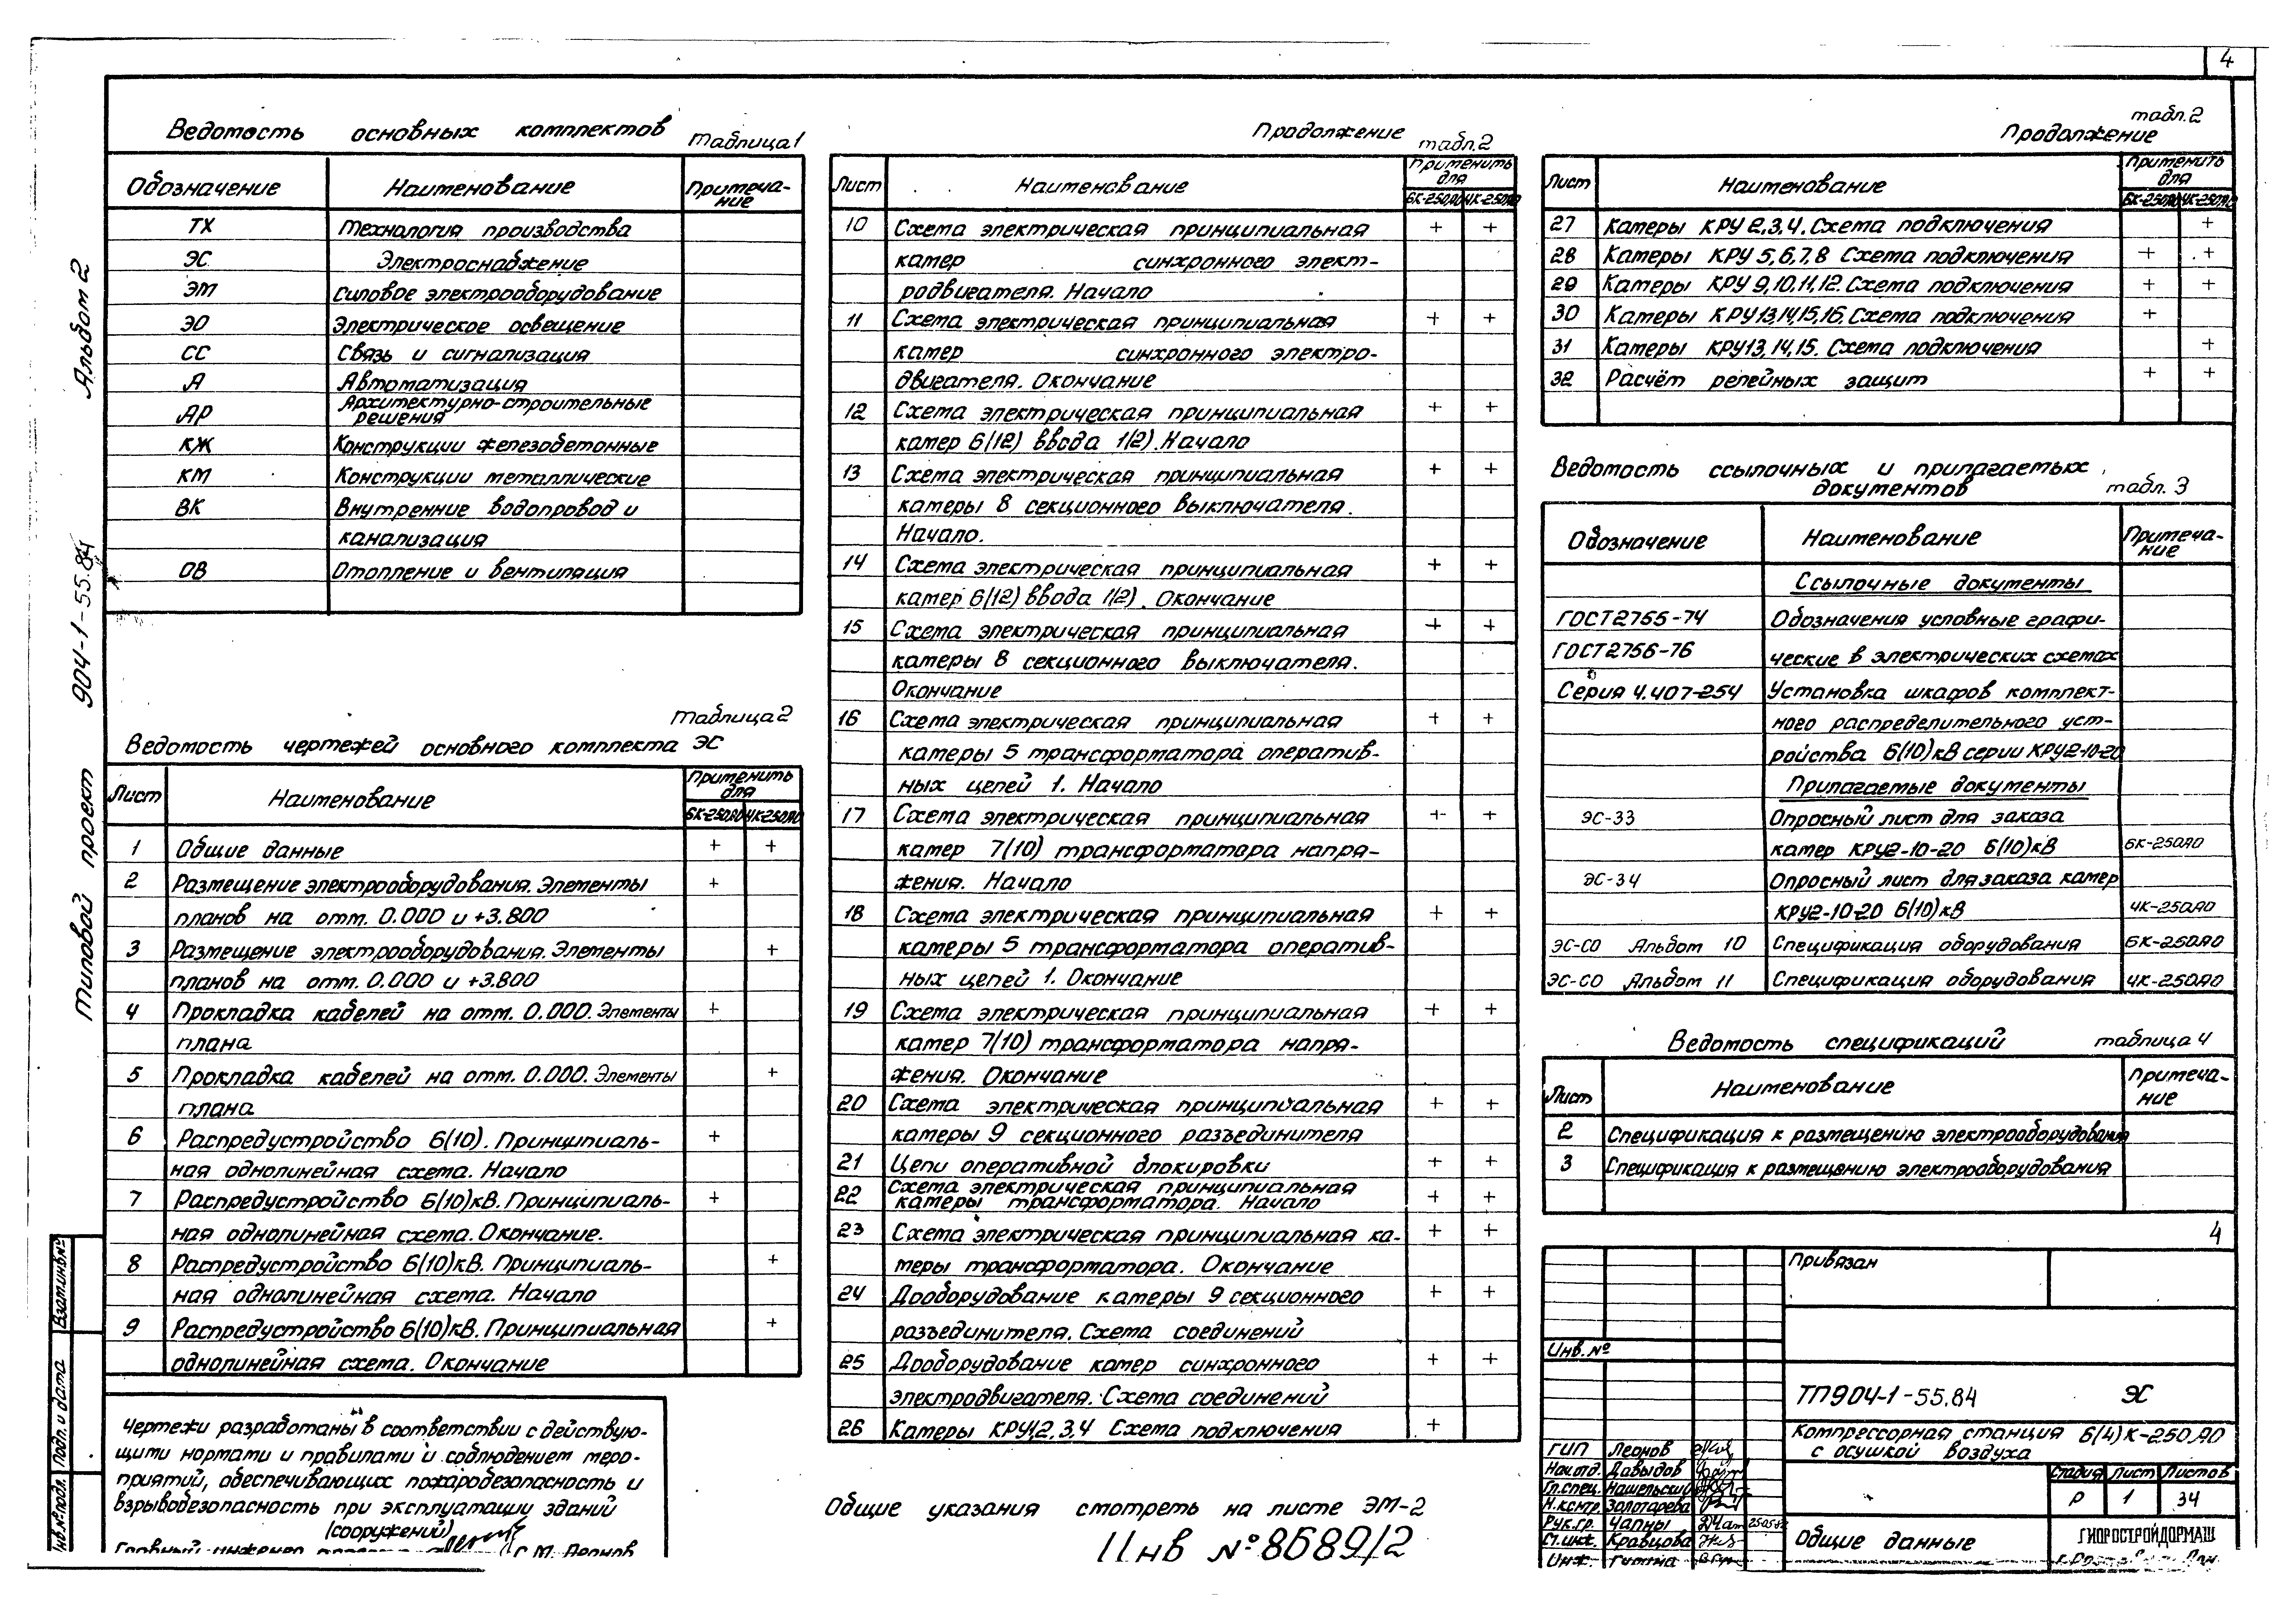 4
Альбом 2
904-1-55.84
Типовой проект
Взам.инв.№
Подп. и дата
Инв.№ подл.
Ведомость основных комплектов
таблица 1
Обозначение Наименование Примеча-
ние
ТХ Технология производства
ЭС Электроснабжение
ЭМ Силовое электрооборудование
ЭО Электрическое освещение
СС Связь и сигнализация
А Автоматизация
АР Архитектурно-строительные
решения
КЖ Конструкции железобетонные
КМ Конструкции металлические
ВК Внутренние водопровод и
канализация
ОВ Отопление и вентиляция
таблица 2
Ведомость чертежей основного комплекта ЭС
Лист Наименование Применить
для
6К-250АО 4К-250АО
1 Общие данные + +
2 Размещение электрооборудования. Элементы +
планов на отм. 0.000 и +3.800
3 Размещение электрооборудования. Элементы +
планов на отм. 0.000 и +3.800
4 Прокладка кабелей на отм. 0.000. Элементы +
плана
5 Прокладка кабелей на отм. 0.000. Элементы +
плана
6 Распредустройство 6(10). Принципиаль- +
ная однолинейная схема. Начало
7 Распредустройство 6(10)кВ. Принципиаль- +
ная однолинейная схема. Окончание.
8 Распредустройство 6(10)кВ. Принципиаль- +
ная однолинейная схема. Начало
9 Распредустройство 6(10)кВ. Принципиальная +
однолинейная схема. Окончание
Чертежи разработаны в соответствии с действую-
щими нормами и правилами и соблюдением меро-
приятий, обеспечивающих пожаробезопасность и
взрывобезопасность при эксплуатации зданий
(сооружений)
Главный инженер проекта С.М. Леонов
Продолжение табл.2
Лист Наименование Применить
для
6К-250АО 4К-250АО
10 Схема электрическая принципиальная + +
камер синхронного элект-
родвигателя. Начало
11 Схема электрическая принципиальная + +
камер синхронного электро-
двигателя. Окончание
12 Схема электрическая принципиальная + +
камер 6(12) ввода 1(2). Начало
13 Схема электрическая принципиальная + +
камеры 8 секционного выключателя.
Начало.
14 Схема электрическая принципиальная + +
камер 6(12) ввода 1(2). Окончание
15 Схема электрическая принципиальная + +
камеры 8 секционного выключателя.
Окончание
16 Схема электрическая принципиальная + +
камеры 5 трансформатора оператив-
ных цепей 1. Начало
17 Схема электрическая принципиальная + +
камер 7(10) трансформатора напря-
жения. Начало
18 Схема электрическая принципиальная + +
камеры 5 трансформатора оператив-
ных цепей 1. Окончание
19 Схема электрическая принципиальная + +
камер 7(10) трансформатора напря-
жения. Окончание
20 Схема электрическая принципиальная + +
камеры 9 секционного разъединителя
21 Цепи оперативной блокировки + +
22 Схема электрическая принципиальная
камеры трансформатора. Начало + +
23 Схема электрическая принципиальная ка- + +
меры трансформатора. Окончание
24 Дооборудование камеры 9 секционного + +
разъединителя. Схема соединений
25 Дооборудование камер синхронного + +
электродвигателя. Схема соединений
26 Камеры КРУ1,2,3,4 Схема подключения +
Общие указания смотреть на листе ЭМ-2
Инв №8689/2
табл.2
Продолжение
Лист Наименование Применить
для
6К-250АО 4К-250АО
27 Камеры КРУ 2,3,4. Схема подключения +
28 Камеры КРУ 5,6,7,8 Схема подключения + +
29 Камеры КРУ 9,10,11,12. Схема подключения + +
30 Камеры КРУ13,14,15,16. Схема подключения +
31 Камеры КРУ13,14,15. Схема подключения +
32 Расчёт релейных защит + +
Ведомость ссылочных и прилагаемых
документов табл. 3
Обозначение Наименование Примеча-
ние
Ссылочные документы
ГОСТ2755-74 Обозначения условные графи-
ГОСТ2756-76 ческие в электрических схемах
Серия 4.407-254 Установка шкафов комплект-
ного распределительного уст-
ройства 6(10)кВ серии КРУ2-10-20
Прилагаемые документы
ЭС-33 Опросный лист для заказа
камер КРУ2-10-20 6(10)кВ 6К-250АО
ЭС-34 Опросный лист для заказа камер
КРУ2-10-20 6(10)кВ 4К-250АО
ЭС-СО Альбом 10 Спецификация оборудования 6К-250АО
ЭС-СО Альбом 11 Спецификация оборудования 4К-250АО
Ведомость спецификаций таблица 4
Лист Наименование Примеча-
ние
2 Спецификация к размещению электрооборудования
3 Спецификация к размещению электрооборудования
4
Привязан
Инв.№
ТП904-1-55.84 ЭС
Компрессорная станция 6(4)К-250АО
с осушкой воздуха
ГИП Леонов
Нач.отд. Давыдов
Гл.спец. Нашельский
Н.контр. Золотарева
Рук.гр. Чапны
Ст.инж. Кравцова
Инж.
Стадия Лист Листов
Р 1 34
Общие данные
ГИПРОСТРОЙДОРМАШ